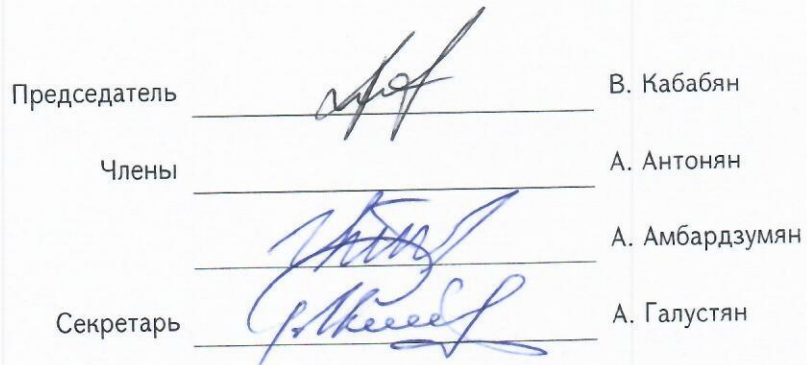 Председатель В. Кабабян
Члены А. Антонян
А. Амбардзумян
Секретарь А. Галустян